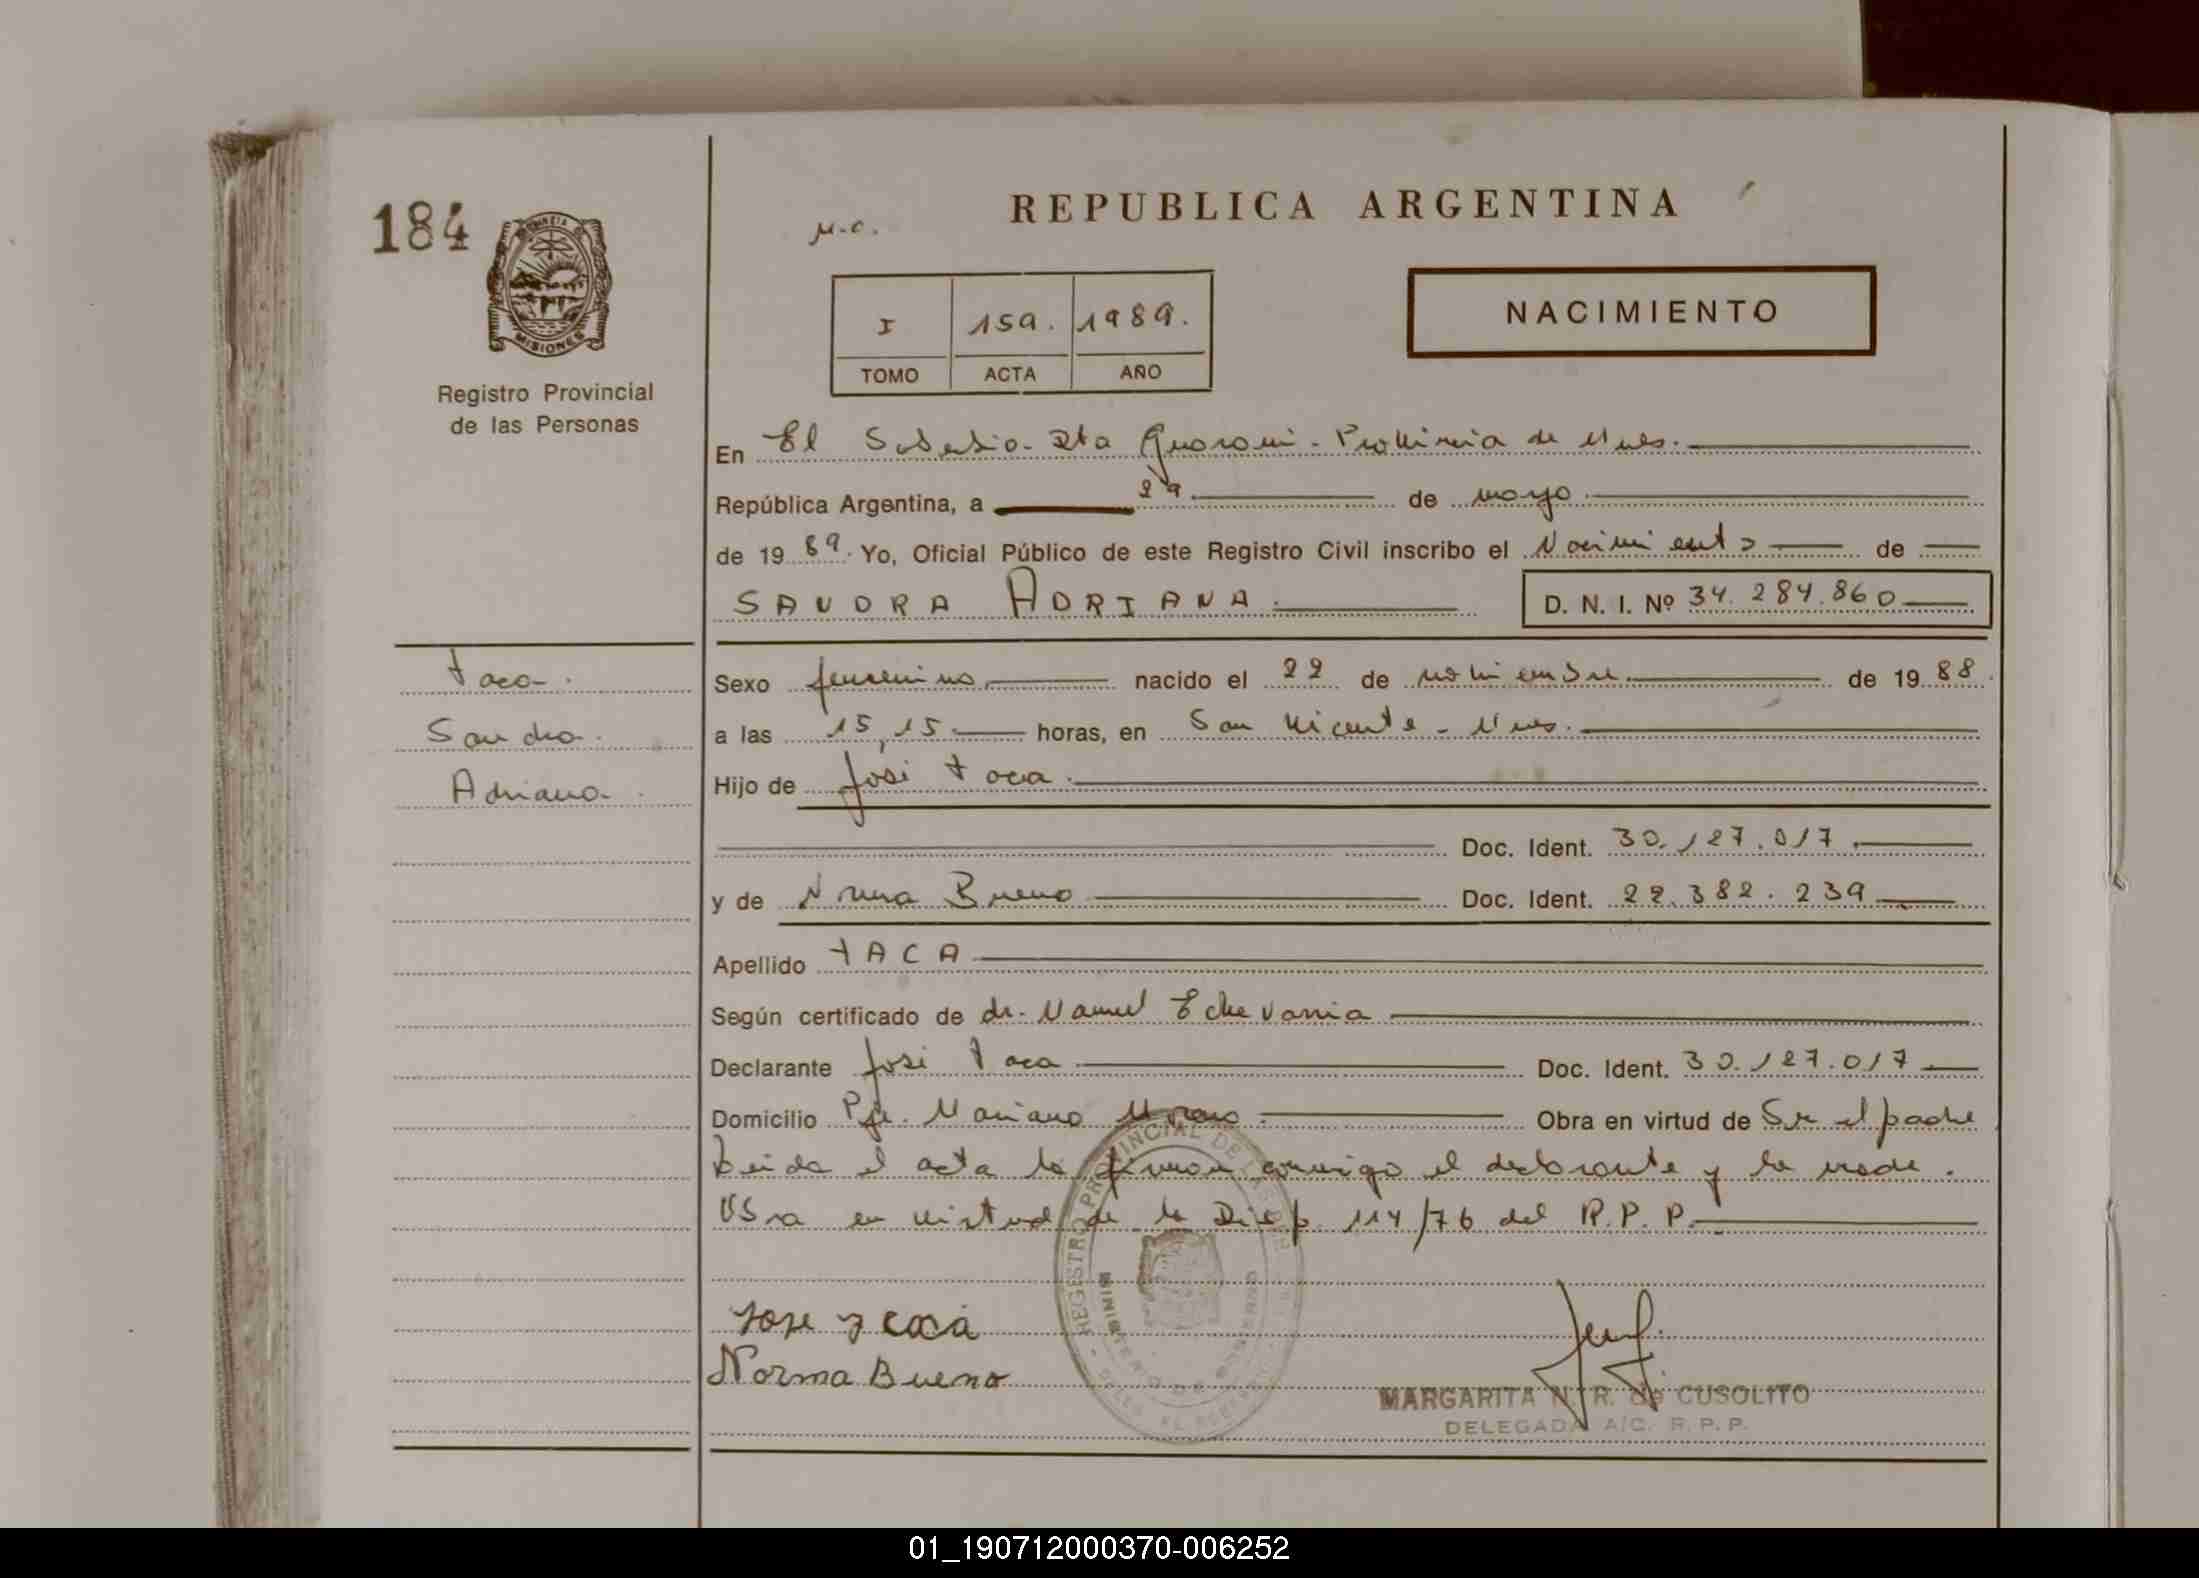 184
PROVINCIA DE
MISIONES
Registro Provincial
de las Personas
REPUBLICA ARGENTINA
M.C.
I 159. 1989.
TOMO ACTA AÑO
NACIMIENTO
En El Soberbio - Dto Guarani - Provincia de Mnes.
República Argentina, a 29 de mayo
de 1989. Yo, Oficial Público de este Registro Civil inscribo el Nacimiento de
SANDRA ADRIANA. D. N. I. Nº 34.284.860
Taca.
Sandra.
Adriana.
Sexo femenino nacido el 22 de noviembre de 1988.
a las 15,15 horas, en San Vicente - Mnes.
Hijo de José Taca.
Doc. Ident. 30.127.017
y de Norma Bueno Doc. Ident. 22.382.239
Apellido TACA
Según certificado de dr. Manuel Echevarria
Declarante José Taca Doc. Ident. 30.127.017
Domicilio Pje. Mariano Moreno. Obra en virtud de Ser el padre
Leida el acta la firman conmigo el declarante y la madre.
Obra en virtud de la Disp. 114/76 del R.P.P.
REGISTRO PROVINCIAL DE LAS PERSONAS
MINISTERIO DE GOBIERNO
Jose Taca
Norma Bueno
MARGARITA N. R. de CUSOLITO
DELEGADA A/C. R.P.P.
01_190712000370-006252